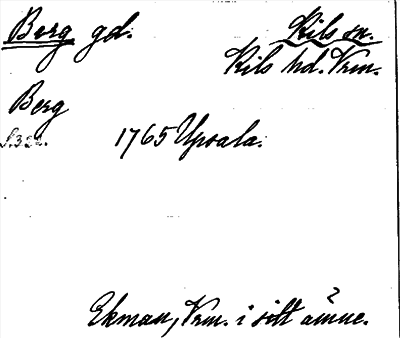 Berg gd. Kils sn.
Kils hd. Vrm.
Berg
1765 Upsala.
Ekman, Vrm. i sitt ämne.